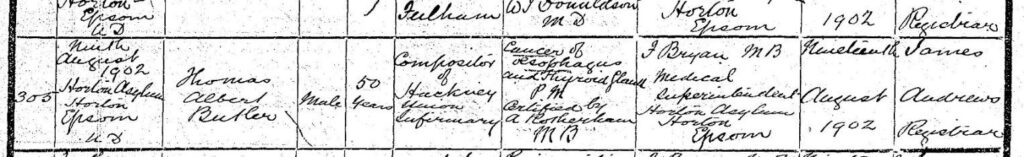 Horton
Epsom
UD
1
Fulham
W J Donaldson
M D
Horton
Epsom
1902
Registrar
305
Ninth
August
1902
Horton Asylum
Horton
Epsom
UD
Thomas
Albert
Butler
Male
50
Years
Compositor
of
Hackney
Union
Infirmary
Cancer of
Œsophagus
and Thyroid Gland
P M
Certified by
A Rotherham
M B
F Bryan M B
Medical
Superintendent
Horton Asylum
Horton
Epsom
Nineteenth
August
1902
James
Andrews
Registrar